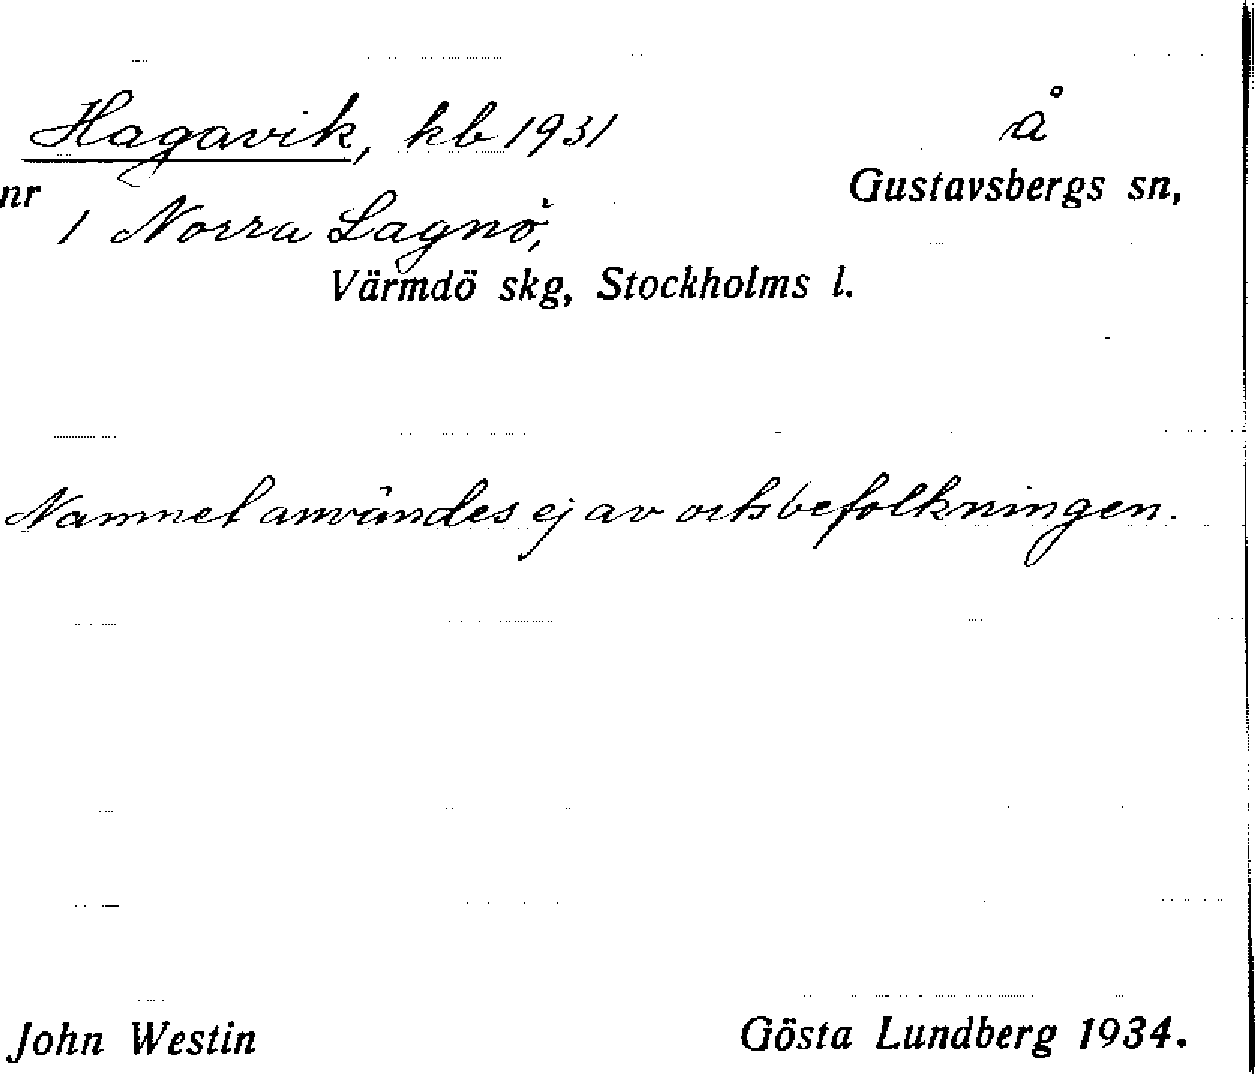 Hagavik, kb 1931 å
nr Gustavsbergs sn,
1 Norra Lagnö,
Värmdö skg, Stockholms l.
Namnet användes ej av ortsbefolkningen.
John Westin Gösta Lundberg 1934.